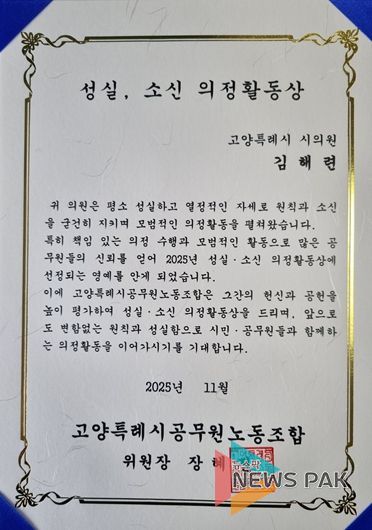 성실, 소신 의정활동상
고양특례시 시의원
김 해 련
귀 의원은 평소 성실하고 열정적인 자세로 원칙과 소신
을 굳건히 지키며 모범적인 의정활동을 펼쳐왔습니다.
특히 책임 있는 의정 수행과 모범적인 활동으로 많은 공
무원들의 신뢰를 얻어 2025년 성실·소신 의정활동상에
선정되는 영예를 안게 되었습니다.
이에 고양특례시공무원노동조합은 그간의 헌신과 공헌을
높이 평가하여 성실·소신 의정활동상을 드리며, 앞으로
도 변함없는 원칙과 성실함으로 시민·공무원들과 함께하
는 의정활동을 이어가시기를 기대합니다.
2025년 11월
고양특례시공무원노동조합
위원장 장 혜
NEWS PAK